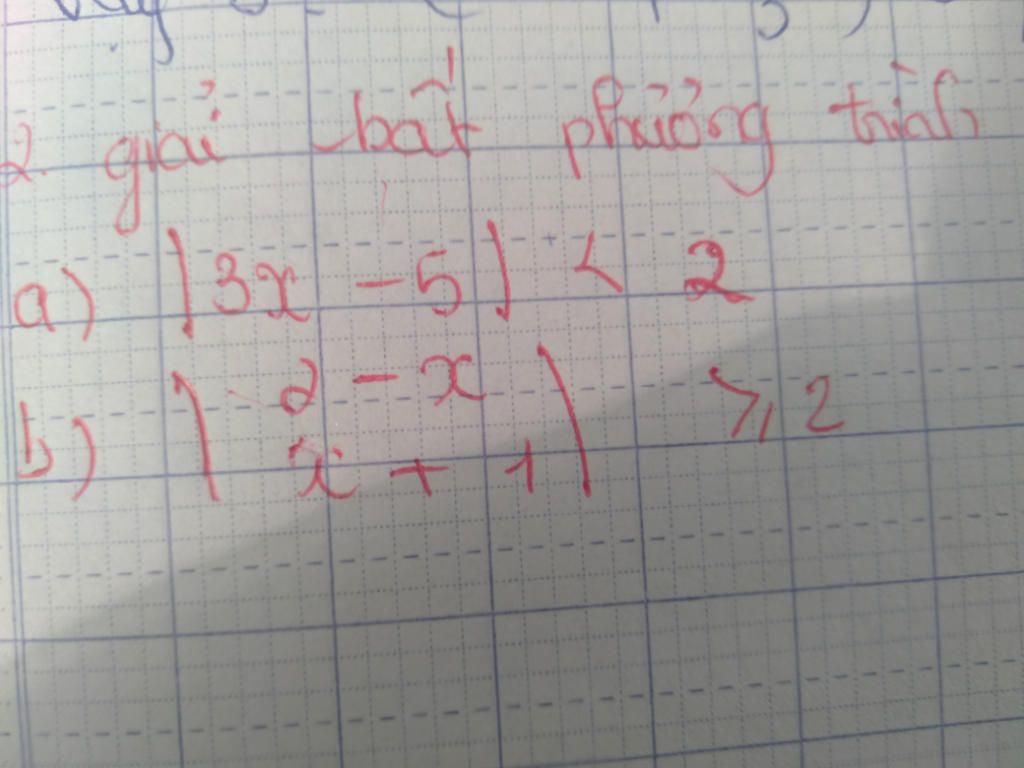 2. giải bất phương trình
a) |3x - 5| < 2
b) | 2 - x
x + 1 | ⩾ 2